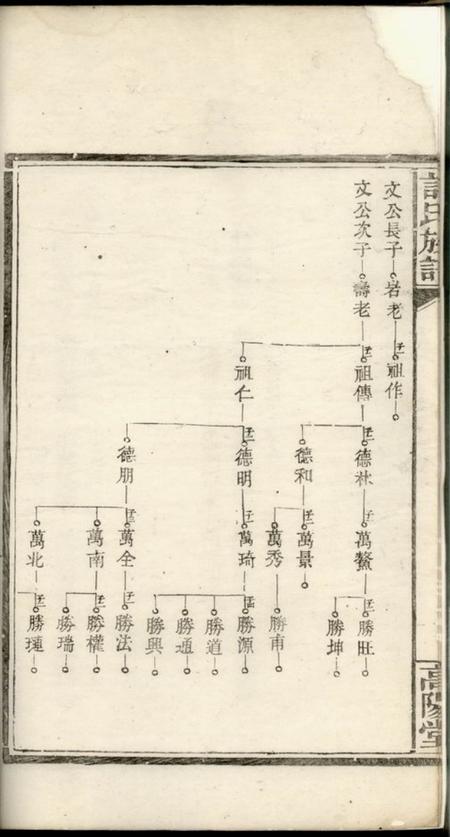 許氏族譜
高陽堂
文公長子 岩老 祖作
文公次子 壽老 祖傳 祖仁
德林 德和 德明 德朋
萬鰲 萬景 萬秀 萬琦 萬全 萬南 萬北
勝旺 勝坤 勝甫 勝源 勝道 勝通 勝興 勝法 勝權 勝瑞 勝璉